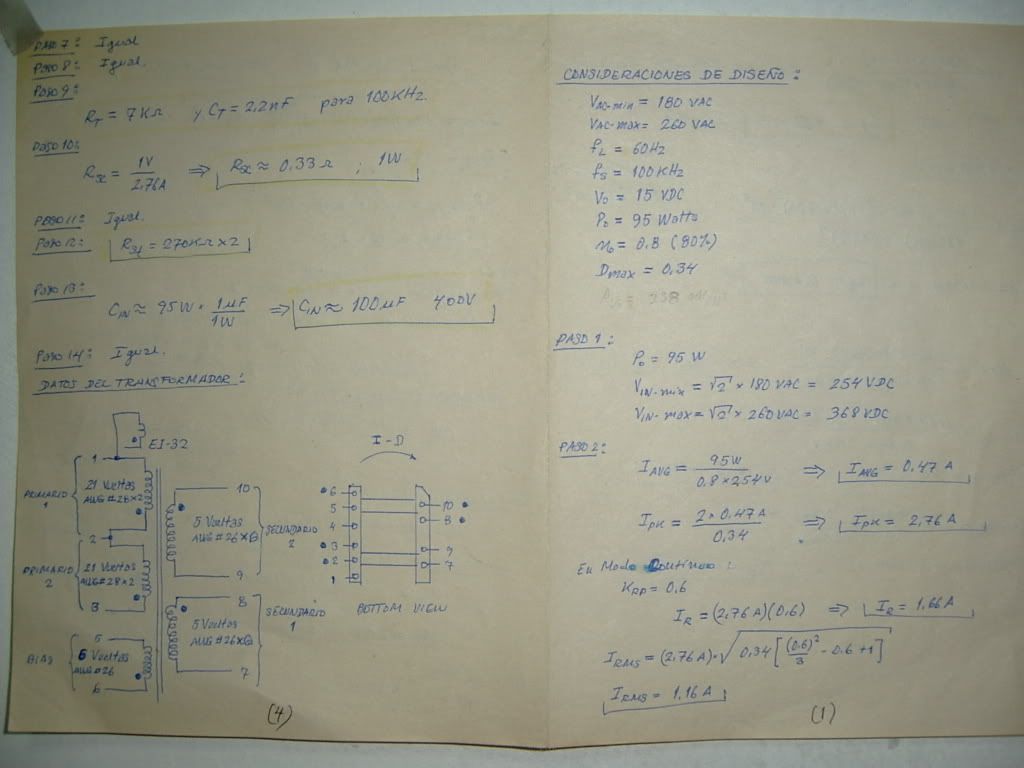 PASO 7: Igual
PASO 8: Igual.
PASO 9:
RT = 7KΩ y CT = 2,2nF para 100KHz.
PASO 10:
RSC = 1V / 2,76A ⇒ RSC ≈ 0.33Ω ; 1W
PASO 11: Igual.
PASO 12: RSt = 270KΩ x 2
PASO 13:
CIN ≈ 95W * 1µF / 1W ⇒ CIN ≈ 100µF 400V
PASO 14: Igual.
DATOS DEL TRANSFORMADOR:
EI-32
PRIMARIO 1
1
21 Vueltas
AWG #28x2
2
PRIMARIO 2
21 Vueltas
AWG #28x2
3
BIAS
5
6 Vueltas
AWG #26
6
10
5 Vueltas
AWG #26x6
9
SECUNDARIO 2
8
5 Vueltas
AWG #26x6
7
SECUNDARIO 1
I-D
6
5
4
3
2
1
10
8
9
7
BOTTOM VIEW
(4)
CONSIDERACIONES DE DISEÑO:
VAC-min = 180 VAC
VAC-max = 260 VAC
fL = 60Hz
fS = 100KHz
Vo = 15 VDC
Po = 95 Watts
no = 0.8 (80%)
Dmax = 0,34
PASO 1:
Po = 95 W
VIN-min = √2 * 180 VAC = 254 VDC
VIN-max = √2 * 260 VAC = 368 VDC
PASO 2:
IAVG = 95W / 0,8 * 254V ⇒ IAVG = 0.47 A
IPK = 2 * 0.47A / 0,34 ⇒ IPK = 2,76 A
En Modo Continuo:
KRP = 0,6
IR = (2,76 A)(0,6) ⇒ IR = 1,66 A
IRMS = (2,76 A) * √0,34 [(0.6)² / 3 - 0.6 + 1]
IRMS = 1,16 A
(1)